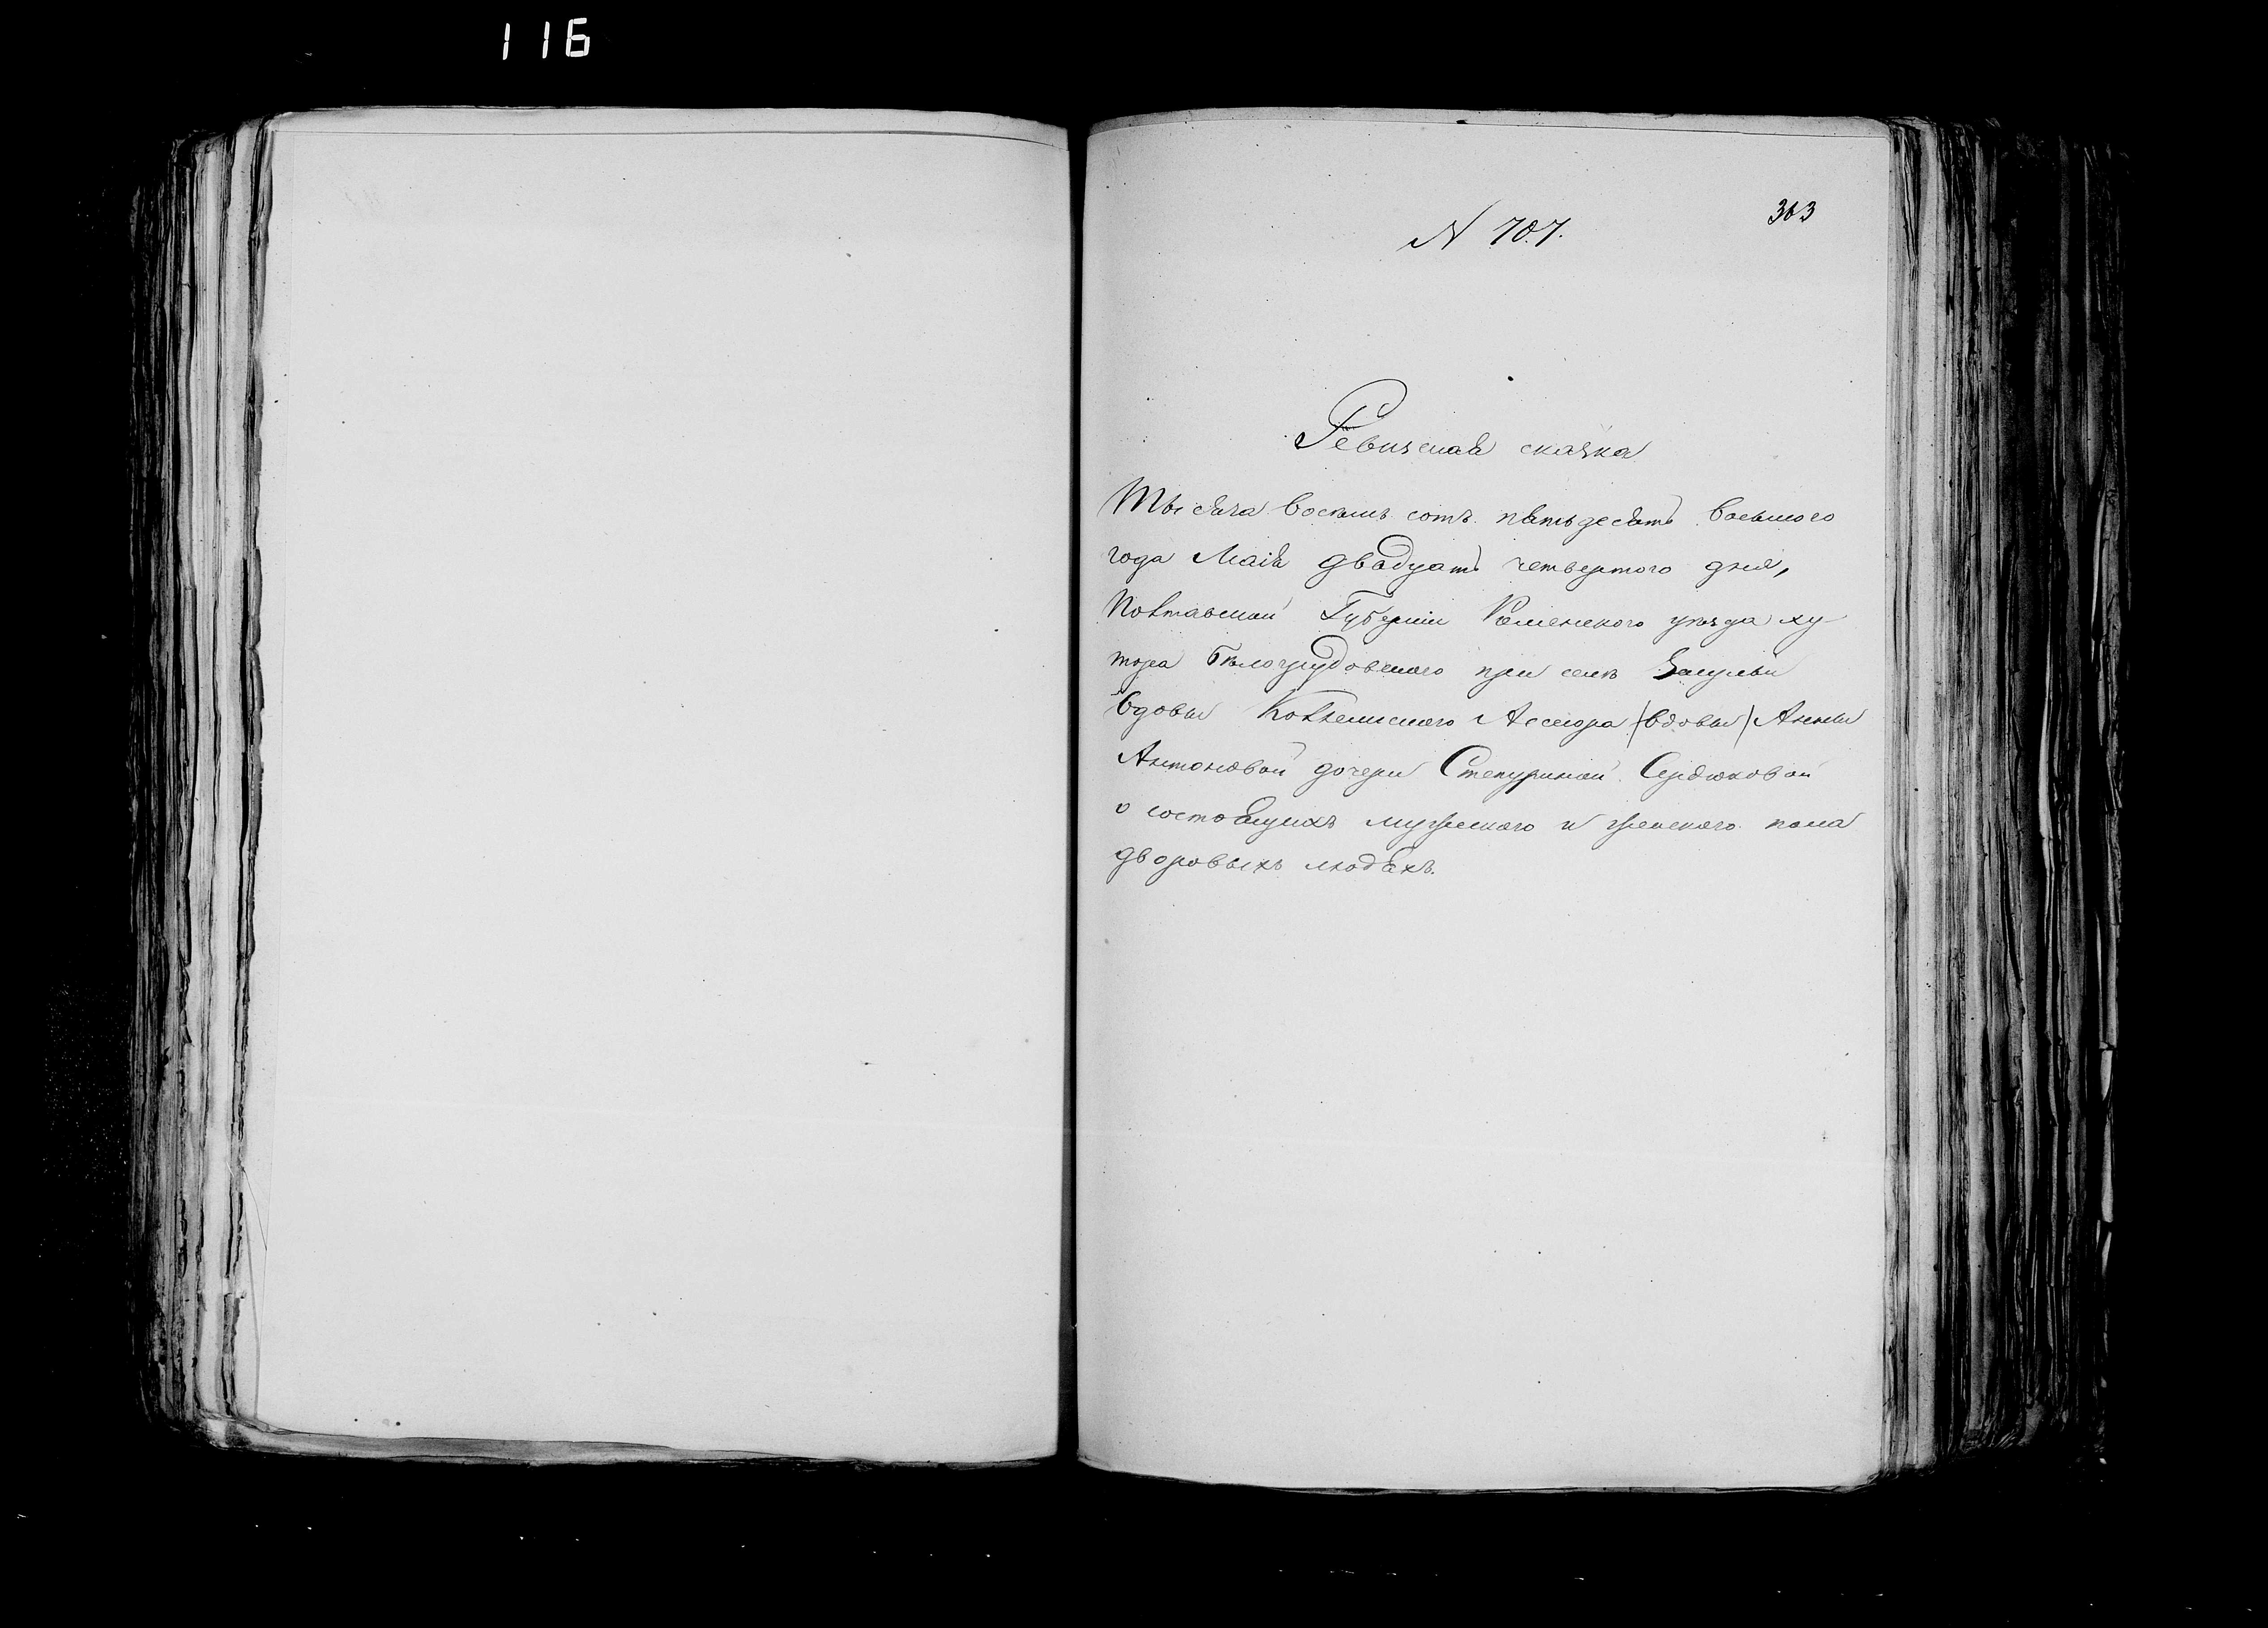 116
363
N 707.
Ревизская сказка
Тысяча восемь сотъ пятьдесятъ восьмого
года Маія двадцать четвертого дня,
Полтавской Губерніи Роменского уѣзда ху
тора Бѣлогрудовского при селѣ Засульи
Вдовы Коллежского Ассесора (вдовы) Анны
Антоновой дочери Степуриной Сердюковой
о состоящихъ мужеского и женского пола
дворовыхъ людяхъ.